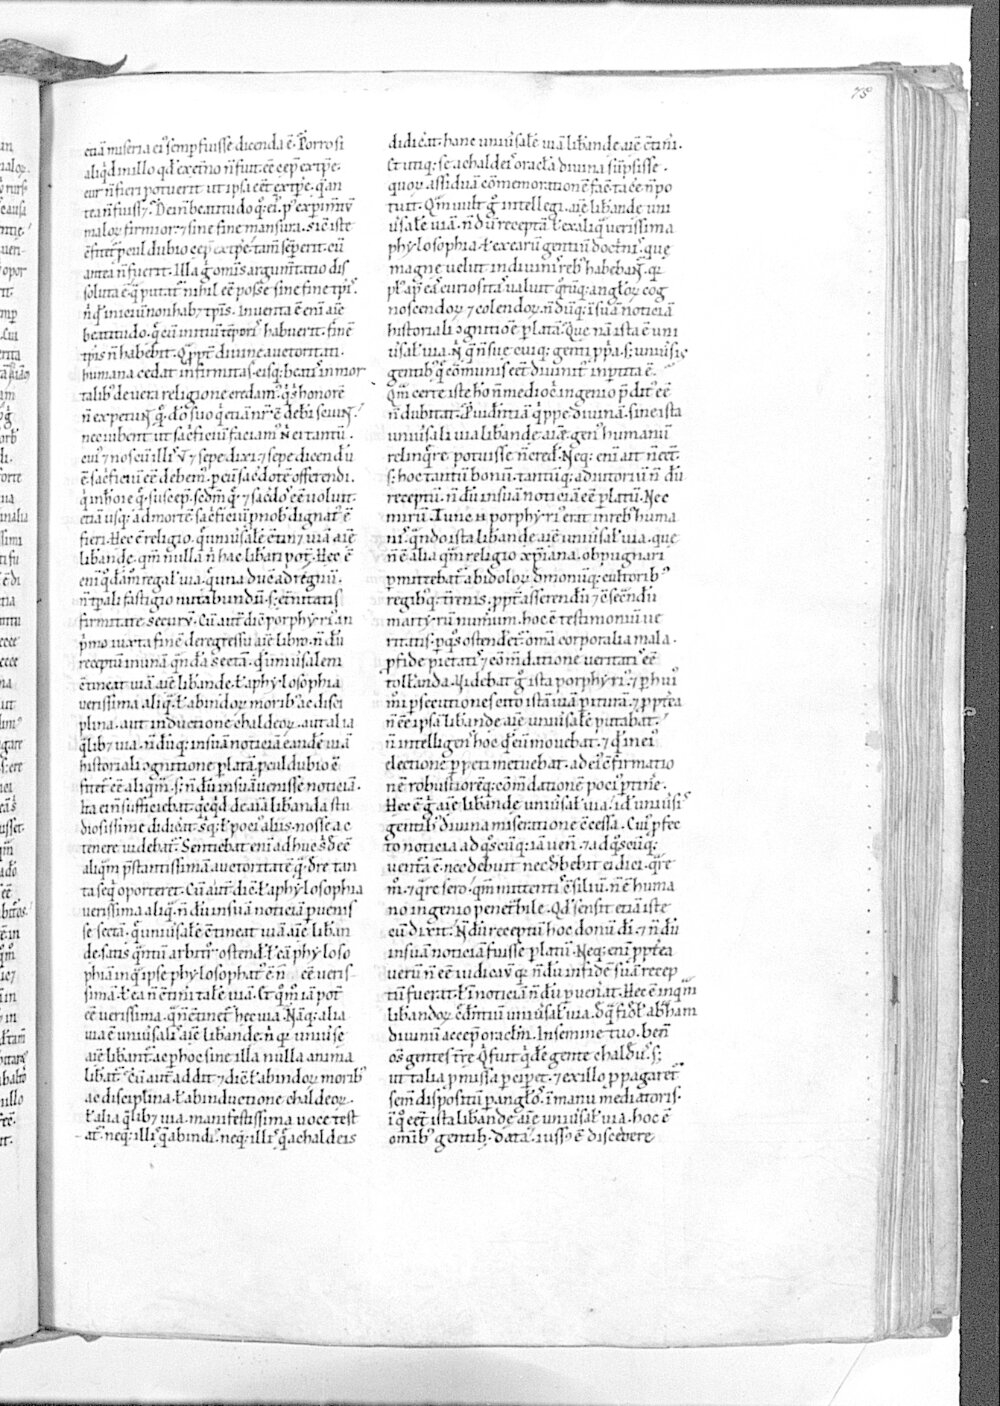 75
etiā miseria ei' semp fuisse dicenda ē. Porro si
aliqd in illo qd ex etno n̄ fuit. eē cep̄ ex tp̄e.
cur n̄ fieri potuerit ut ipsa eēt ex tp̄e. q̄ an
tea n̄ fuiss&. Dein beatitudo q̄.
malor firmior. & sine fine mansura. sic iste
pcul dubio cep̄ ex tp̄e. tam sep̄ erit. cū
antea n̄ fuerit. Illa g° omīs argum̄tatio dis
soluta ē. q̄ putat' nihil eē posse sine fine tp̄r.
n̄ q° iniciū non hab& tp̄ris. Inuenta ē enī aīe
beatitudo. q̄ cū initiū tēporis habuerit. finē
tp̄ris n̄ habebit. Q̄ppt̄ diuine auctoritati.
humana cedat infirmitas. eisq; beatis inmor
talib' de uera religione credam'. q' s' honorē
n̄ expetunt
nec iubent ut sac̄ficiū faciam' n̄ ei tantū.
cui' & nos cū illis & sepe dixi. & sepe dicendū
ē. sac̄ficiū eē debem'. p eū sac̄dotē offerendi.
etiā usq; ad mortē sac̄ficiū p nob' dignat' ē
fieri. Hec ē religio. q̄ uniūsalē ctin& uiā aīe
libande. qm̄ nulla n̄ hac libari pot̄. Hec ē
enī qdam regal' uia. q̄ una duc̄ ad regnū.
n̄ tp̄ali fastigio nutabundū. s; et̄nitatis
firmitate securū. Cū aut̄ dic̄ porphyri' in
p̄mo iuxta finē de regressu aīe libro. n̄ dū
receptū in unā q̄ndā sectā. q̄ uniūsalem
ctineat uiā aīe libande. ł a phylosophia
uerissima aliq̄. ł ab indor morib' ac disci
plina. aut inductione chaldeor. aut alia
q̄lib& uia. n̄ dūq; in suā noticiā eandē uiā
historiali cognitione platā. pcul dubio c
fitet' eē aliqm̄. s; n̄ dū in suā uenisse noticiā.
Ita ei n̄ sufficiebat. qcqd de aīa libanda stu
diosissime didicerat. s' q; ł poci' aliis. nosse ac
tenere uidebat'. Sentiebat enī adhuc s' deeē
aliqm̄ p̄stantissimā auctoritatē q̄ dre tan
ta seq' oporteret. Cū aut̄ dic̄ ł a phylosophia
uerissima aliq̄. n̄ dū in suā noticiā puenis
se sectā. q̄ uniūsalē ctineat uiā aīe liban
de. satis q̄ntū arbitr' ostend. ł eā phyloso
phiā in q̄ ipse phylosophat' ē n̄ eē ueris
simā. ł ea n̄ ctineri talē uiā. Et qm̄ iā pot̄
eē uerissima. q̄ n̄ ctinet' hec uia. Nā q; alia
uia ē uniūsalis aīe libande. n̄ q̄ uniūse
aīe libant. ac p hoc sine illa nulla anima
libat'. Cū aut̄ addit & dic̄ ł ab indor morib'
ac disciplina. ł ab inductione chaldeor.
ł alia q̄lib& uia. manifestissima uoce test
at'. neq; illis q̄ ab indis. neq; illis q̄ a chaldeis
didicerat. hanc uniūsalē uiā libande aīe ctineri.
Et utiq; se a chaldeis oracla diuina sūpsisse.
quor assiduā cōmemorationē fac̄. tacere n̄ po
tuit. Qm̄ uult g° intellegi. aīe libande uni
ūsalē uiā. n̄ dū receptā. ł ex aliq̄ uerissima
phylosophia. ł ex earū gentiū doctrinis. que
magne uelut in diuinis reb' habebant'. q̄
pl' ap̄ eas curiositas ualuit q̄rūq; anglor cog
noscendor & colendor. n̄ dūq; in suā noticiā
historiali cognitione platā. Que nā ista ē uni
ūsal' uia. n̄ q̄ n̄ sue cuiq; genti pp̄a. s; uniūsis
gentib' q̄ cōmunis eēt diuinit' inptita ē.
Qm̄ certe iste hō n̄ mediocris ingenio p̄dit' eē
n̄ dubitat. Puidētiā q̄ppe diuinā. sine ista
uniūsali uia libande aīe gen' humanū
relinq̄re potuisse n̄ cred. Neq; enī ait n̄ eēt.
s; hoc tantū bonū. tantūq; adiutoriū n̄ dū
receptū. n̄ dū in suā noticiā eē platū. Nec
mirū. Tunc n̄ porphyri' erat in reb' huma
nis. q̄ndo ista libande aīe uniūsal' uia. que
n̄ ē alia qm̄ religio xpiana. obpugnari
pmittebat' ab idolor demonūq; cultorib'
regib'q; trenis. ppt̄ asserendū & csecrandū
martyrū numerum. hoc ē testimoniū ue
ritatis. p q's ostender&. omīa corporalia mala.
p fide pietatis & cōmendatione ueritatis eē
tolłanda. Uidebat g° ista porphyri'. & p hui'
m̄i psecutiones cito istā uiā pituram. & ppt̄ea
n̄ eē ipsā libande aīe uniūsalē putabat.
n̄ intelligens hoc q̄ eū mouebat. & q̄ in ei'
electione ppeti metuebat. ad ei' cfirmatio
nē robustiorēq; cōmdationē poci' ptinere.
Hec ē g° aīe libande uniūsal' uia. id ē uniūsis
gentib' diuina miseratione ccessa. Cui' pfec
to noticia ad q'scūq; iā uen̄. & ad q'scūq;
uentura ē. nec debuit nec debebit ei dici. q̄re
m̄. & q̄re sero. qm̄ mittentis csiliū. n̄ ē huma
no ingenio penetrabile. Qd sensit etiā iste
cū dixit. N̄ dū receptū hoc donū dei. & n̄ dū
in suā noticiā fuisse platū. Neq; enī ppt̄ea
uerū n̄ eē iudicauit. q̄ n̄ dū in fidē suā recep
tū fuerat. ł in noticiā n̄ dū puenerat. Hec ē inqm̄
libandor credentiū uniūsal' uia. de q̄ fidel' abraham
diuinū accep̄ oraclm̄. In semine tuo. ben̄
oms gentes tre. Q' fuit q̄de gente chaldeus. s;
ut talia pmissa pcip&. & ex illo ppagaret'
sem̄ dispositū p anglos. in manu mediatoris.
in q° eēt ista libande aīe uniūsal' uia. hoc ē
omīb' gentib; data. iussus ē discedere